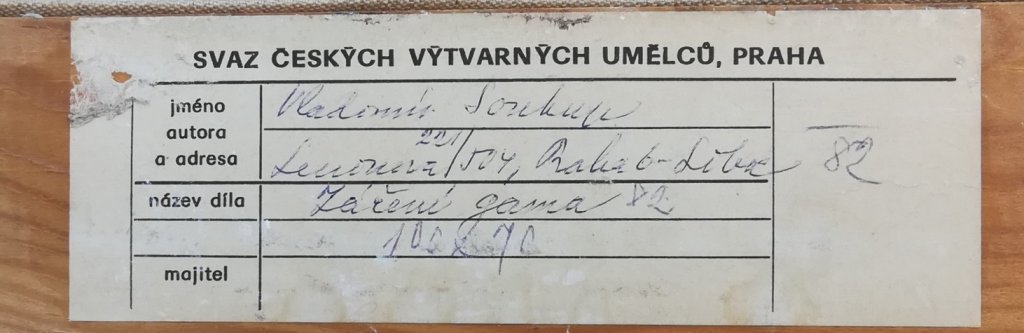 SVAZ ČESKÝCH VÝTVARNÝCH UMĚLCŮ, PRAHA
jméno autora a adresa
Vladimír Soukup
221
Leninova /504, Praha 6 - Liboc
82
název díla
Záření gama 82
100 x 70
majitel